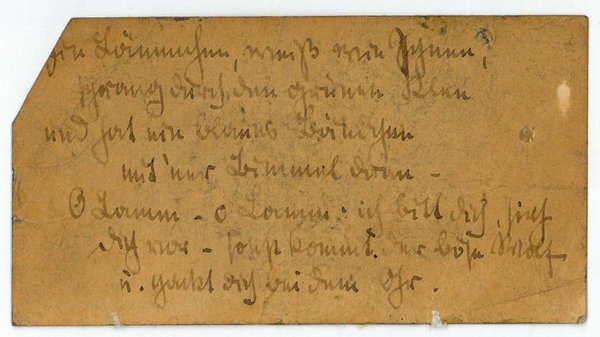 Ein Lämmchen, weiß wie Schnee,
sprang durch den grünen Klee
und hat ein blaues Bändchen
mit'ner Bimmel dran –
O Lamm – o Lamm: ich bitt dich, sieh
dich vor – sonst kommt der böse Wolf
u. packt dich bei dem Ohr.